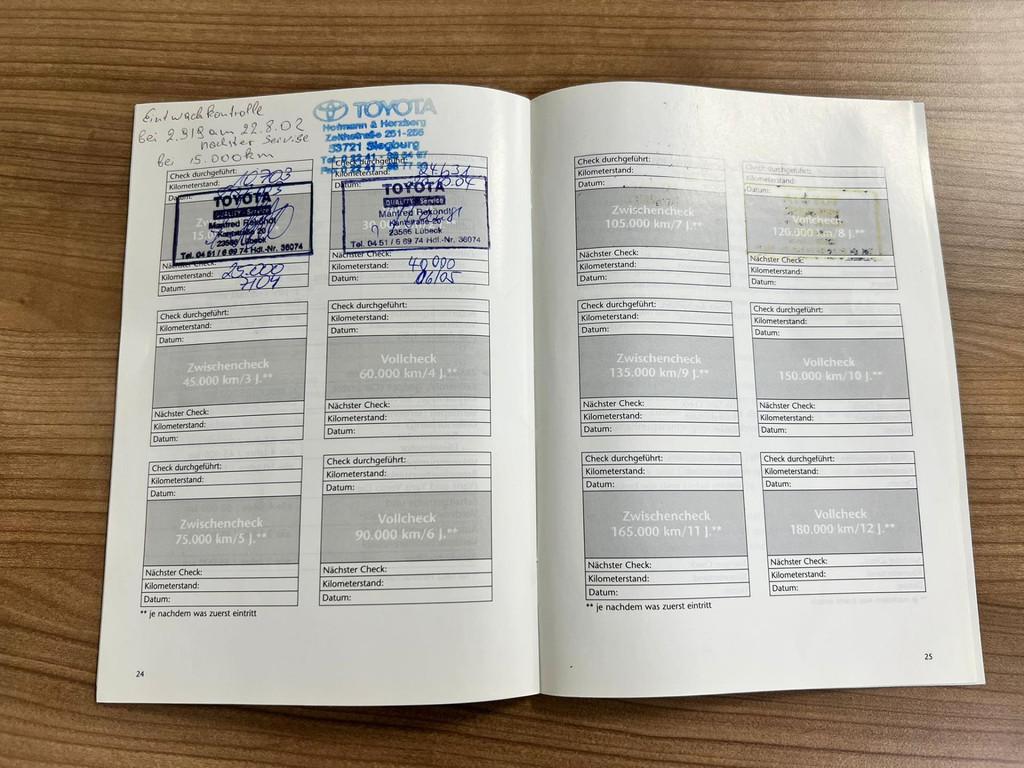 bei 2.919 am 22.8.02
nächster Service
bei 15.000 km
TOYOTA
Hofmann & Herzberg
Zeithstraße
53721 Siegburg
Check durchgeführt:
Kilometerstand: 10.703
Datum:
TOYOTA
QUALITY Service
Manfred
23566 Lübeck
Tel. 04 51 / 6 09 74 Hdl.-Nr. 36074
Nächster Check:
Kilometerstand: 25.000
Datum: 7/04
Check durchgeführt:
Kilometerstand: 24.634
Datum:
TOYOTA
QUALITY Service
Manfred
23566 Lübeck
Tel. 04 51 / 6 09 74 Hdl.-Nr. 36074
Kilometerstand: 40.000
Datum: 06/05
Check durchgeführt:
Kilometerstand:
Datum:
Zwischencheck
45.000 km/3 J.**
Nächster Check:
Kilometerstand:
Datum:
Check durchgeführt:
Kilometerstand:
Datum:
Vollcheck
60.000 km/4 J.**
Nächster Check:
Kilometerstand:
Datum:
Check durchgeführt:
Kilometerstand:
Datum:
Zwischencheck
75.000 km/5 J.**
Nächster Check:
Kilometerstand:
Datum:
Check durchgeführt:
Kilometerstand:
Datum:
Vollcheck
90.000 km/6 J.**
Nächster Check:
Kilometerstand:
Datum:
** je nachdem was zuerst eintritt
24
Check durchgeführt:
Kilometerstand:
Datum:
Zwischencheck
105.000 km/7 J.**
Nächster Check:
Kilometerstand:
Datum:
Check durchgeführt:
Kilometerstand:
Datum:
Vollcheck
120.000 km/8 J.**
Nächster Check:
Kilometerstand:
Datum:
Check durchgeführt:
Kilometerstand:
Datum:
Zwischencheck
135.000 km/9 J.**
Nächster Check:
Kilometerstand:
Datum:
Check durchgeführt:
Kilometerstand:
Datum:
Vollcheck
150.000 km/10 J.**
Nächster Check:
Kilometerstand:
Datum:
Check durchgeführt:
Kilometerstand:
Datum:
Zwischencheck
165.000 km/11 J.**
Nächster Check:
Kilometerstand:
Datum:
Check durchgeführt:
Kilometerstand:
Datum:
Vollcheck
180.000 km/12 J.**
Nächster Check:
Kilometerstand:
Datum:
** je nachdem was zuerst eintritt
25